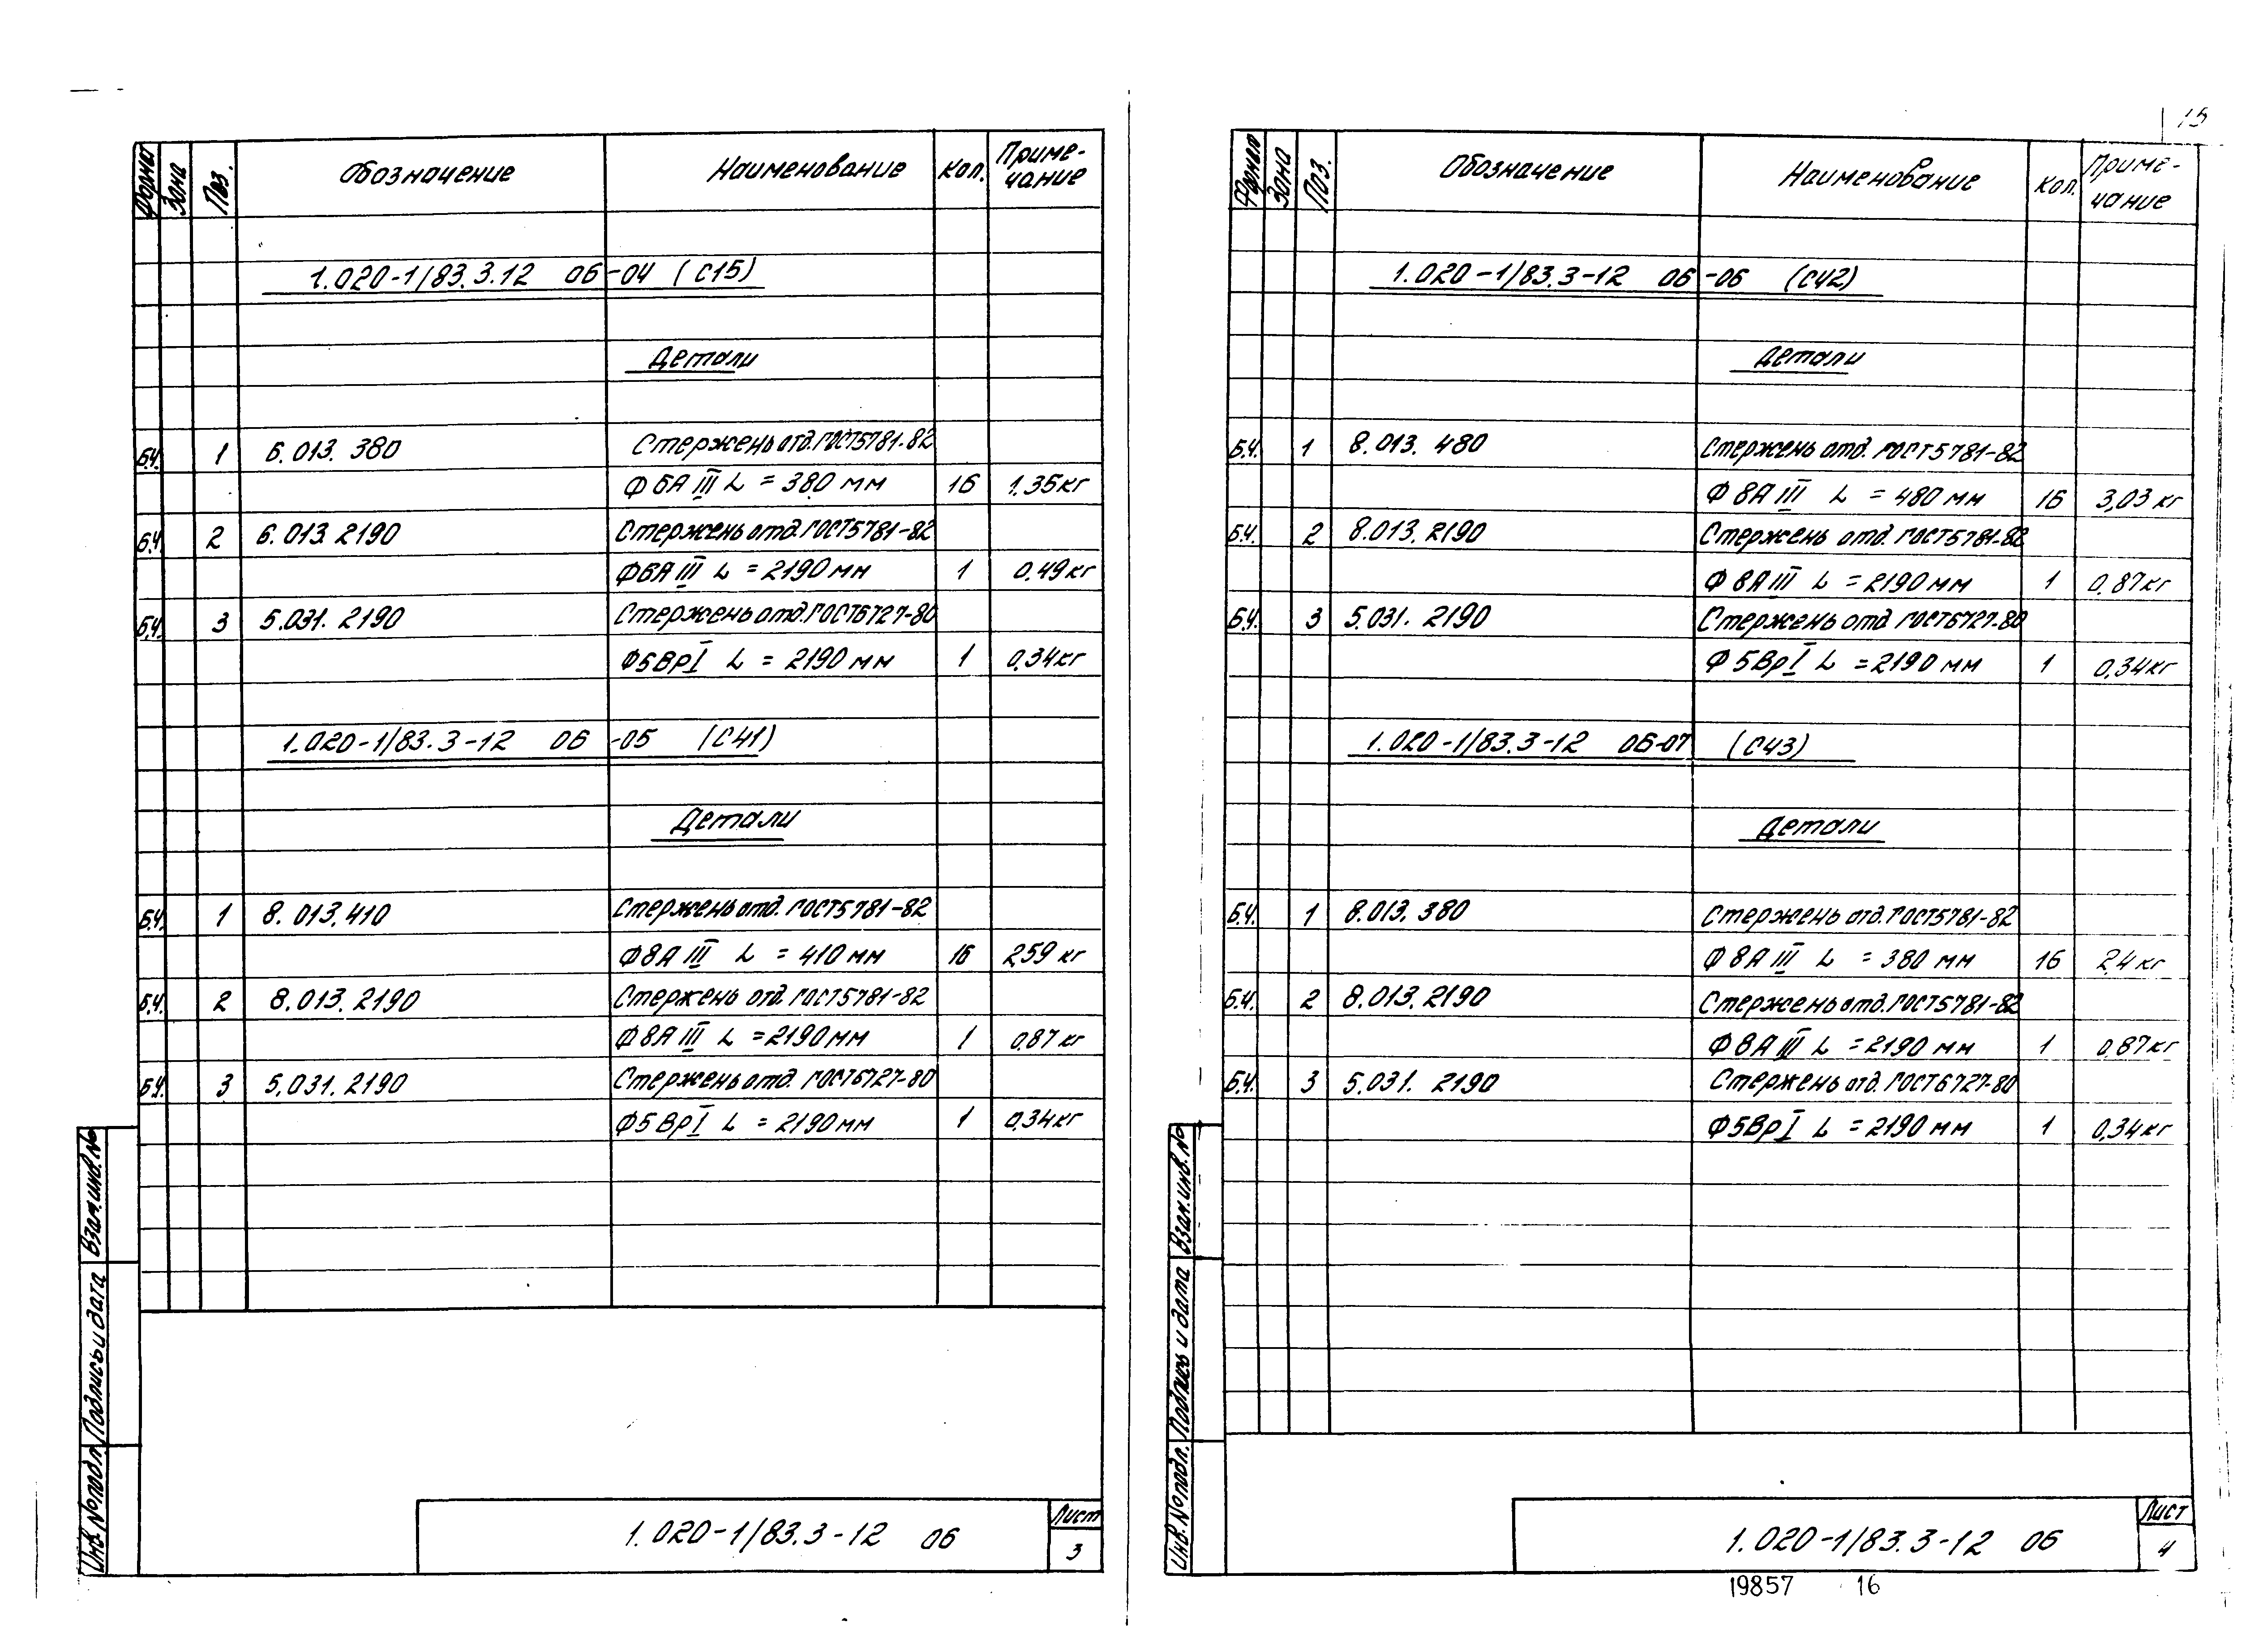 Формат Зона Поз. Обозначение Наименование Кол. Приме-
чание
1.020-1/83.3.12 06-04 (С15)
Детали
Б.Ч. 1 6.013.380 Стержень отд. ГОСТ5781-82
Ф6АIII L = 380 мм 16 1.35кг
Б.Ч. 2 6.013.2190 Стержень отд. ГОСТ5781-82
Ф6АIII L = 2190мм 1 0,49кг
Б.Ч. 3 5.031.2190 Стержень отд. ГОСТ6727-80
Ф5ВрI L = 2190 мм 1 0.34кг
1.020-1/83.3-12 06-05 (С41)
Детали
Б.Ч. 1 8.013.410 Стержень отд. ГОСТ5781-82
Ф8АIII L = 410 мм 16 2,59 кг
Б.Ч. 2 8.013.2190 Стержень отд. ГОСТ5781-82
Ф8АIII L = 2190мм 1 0,87 кг
Б.Ч. 3 5.031.2190 Стержень отд. ГОСТ6727-80
Ф5ВрI L = 2190мм 1 0,34кг
Взам.инв.№
Подпись и дата
Инв.№подл.
1.020-1/83.3-12 06
Лист
3
15
Формат Зона Поз. Обозначение Наименование Кол. Приме-
чание
1.020-1/83.3-12 06-06 (С42)
Детали
Б.Ч. 1 8.013.480 Стержень отд. ГОСТ5781-82
Ф8АIII L = 480 мм 16 3,03 кг
Б.Ч. 2 8.013.2190 Стержень отд. ГОСТ5781-82
Ф8АIII L = 2190 мм 1 0,87кг
Б.Ч. 3 5.031.2190 Стержень отд ГОСТ6727-80
Ф5ВрI L = 2190 мм 1 0,34кг
1.020-1/83.3-12 06-07 (С43)
Детали
Б.Ч. 1 8.013.380 Стержень отд. ГОСТ5781-82
Ф8АIII L = 380 мм 16 2,4 кг
Б.Ч. 2 8.013.2190 Стержень отд. ГОСТ5781-82
Ф8АIII L = 2190 мм 1 0,87кг
Б.Ч. 3 5.031.2190 Стержень отд. ГОСТ6727-80
Ф5ВрI L = 2190 мм 1 0,34кг
Взам.инв.№
Подпись и дата
Инв.№подл.
1.020-1/83.3-12 06
Лист
4
19857 16